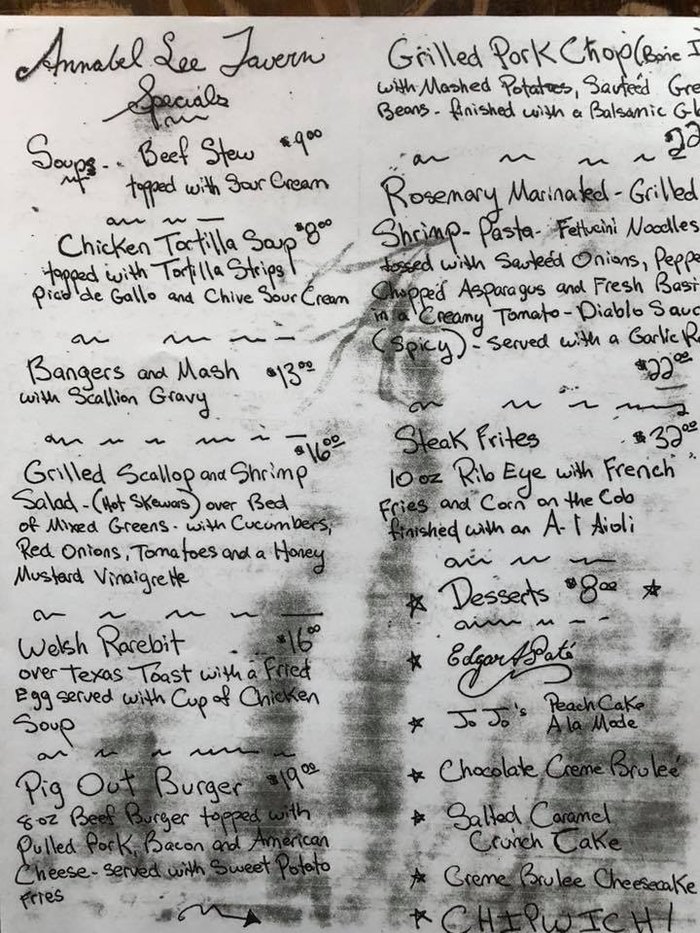 Annabel Lee Tavern
Specials
Soups... Beef Stew $9.00
topped with Sour Cream
Chicken Tortilla Soup $8.00
topped with Tortilla Strips
Pico de Gallo and Chive Sour Cream
Bangers and Mash $13.00
with Scallion Gravy
$16.00
Grilled Scallop and Shrimp
Salad - (Hot Skewars) over Bed
of Mixed Greens - with Cucumbers,
Red Onions, Tomatoes and a Honey
Mustard Vinaigrette
Welsh Rarebit $16.00
over Texas Toast with a Fried
Egg served with Cup of Chicken
Soup
Pig Out Burger $19.00
8 oz Beef Burger topped with
Pulled Pork, Bacon and American
Cheese - served with Sweet Potato
Fries
Grilled Pork Chop (Bone I
with Mashed Potatoes, Sauteéd Gre
Beans - finished with a Balsamic Gl
22
Rosemary Marinated - Grilled
Shrimp - Pasta - Fettucini Noodles
tossed with Sauteéd Onions, Peppe
Chopped Asparagus and Fresh Basi
in a Creamy Tomato - Diablo Sauc
(Spicy) - served with a Garlic R
$22.00
Steak Frites $32.00
10 oz Rib Eye with French
Fries and Corn on the Cob
finished with an A-1 Aioli
Desserts $8.00
Edgar A Paté
Jo Jo's Peach Cake
A la Mode
Chocolate Creme Bruleé
Salted Caramel
Crunch Cake
Creme Brulee Cheesecake
CHIPWICH!